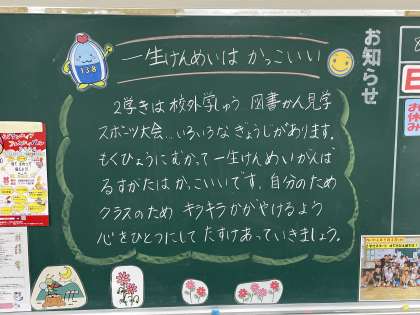 一生けんめいは かっこいい
138
お知らせ
2学きは 校外学しゅう 図書かん見学
スポーツ大会…いろいろなぎょうじがあります。
もくひょうにむかって一生けんめいがんば
るすがたは かっこいいです。自分のため
クラスのため キラキラかがやけるよう
心をひとつにして たすけあっていきましょう。
日
お休み